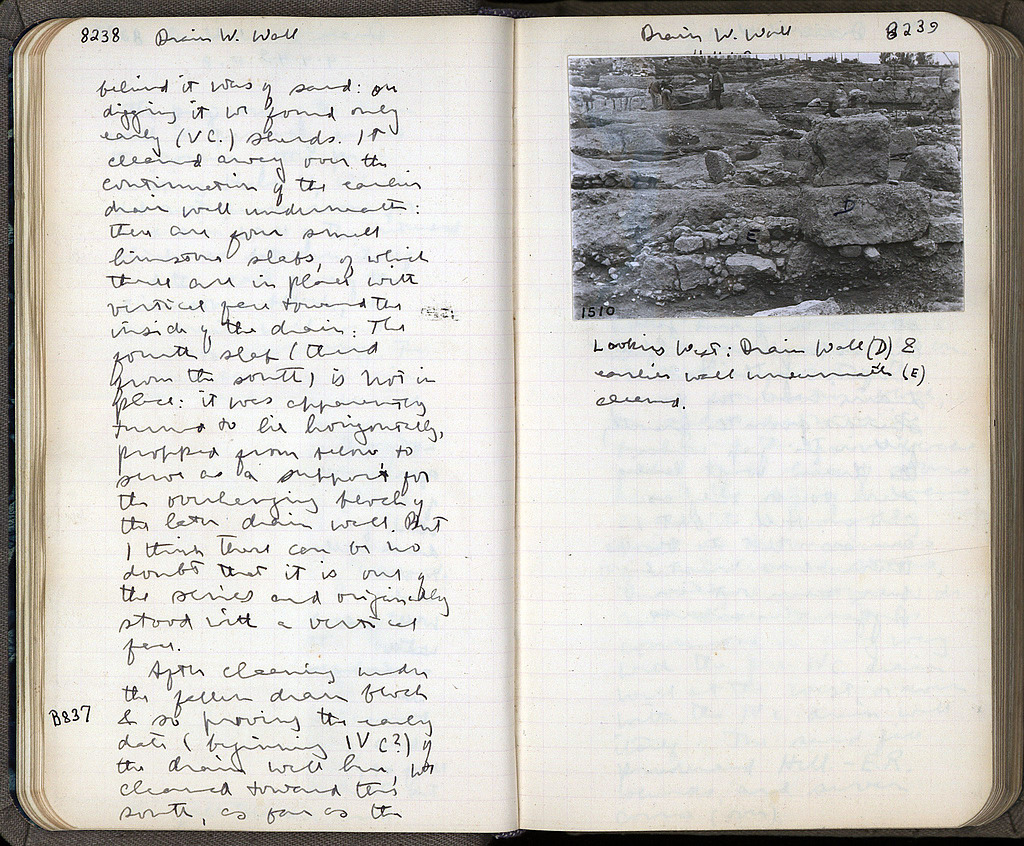 8238 Drain W. Wall
behind it was of sand: on
digging it we found only
early (V C.) sherds. I
cleared away over the
continuation of the earlier
drain wall underneath:
there are four small
limestone slabs, of which
three are in place with
vertical face toward the
inside of the drain. The
fourth slab (third
from the south) is not in
place: it was apparently
turned to lie horizontally,
propped from below to
serve as a support for
the overhanging block of
the later drain wall. But
I think there can be no
doubt that it is one of
the series and originally
stood with a vertical
face.
After cleaning under
the fallen drain block
B837
& so proving the early
date (beginning IV C?) of
the drain wall here, we
cleared toward the
south, as far as the
Drain W. Wall 8239
D
E
1510
Looking West: Drain Wall (D) &
earlier wall underneath (E)
cleared.